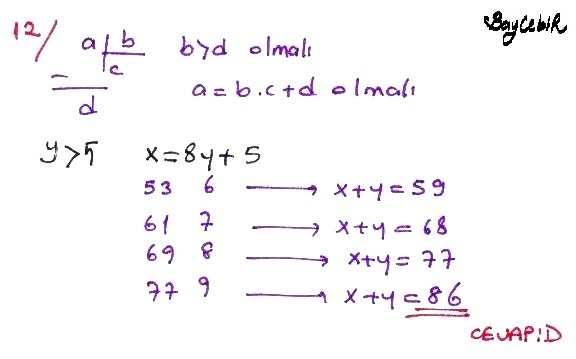 BaycebiR
12/
a | b b>d olmalı
c
= a=b.c+d olmalı
d
y>5 x=8y+5
53 6 → x+y=59
61 7 → x+y=68
69 8 → x+y=77
77 9 → x+y=86
CEVAP:D